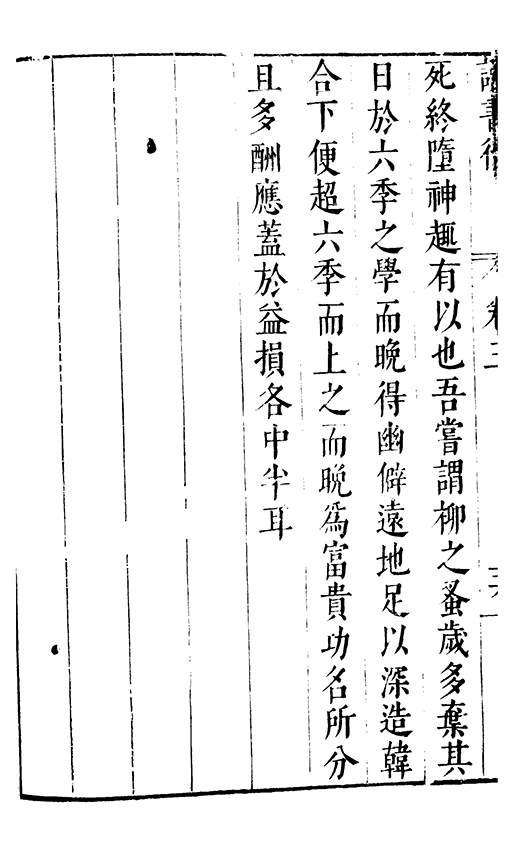 讀書後 卷三
死終墮神趣有以也吾嘗謂柳之蚤歲多棄其
日於六季之學而晚得幽僻遠地足以深造韓
合下便超六季而上之而晚爲富貴功名所分
且多酬應蓋於益損各中半耳